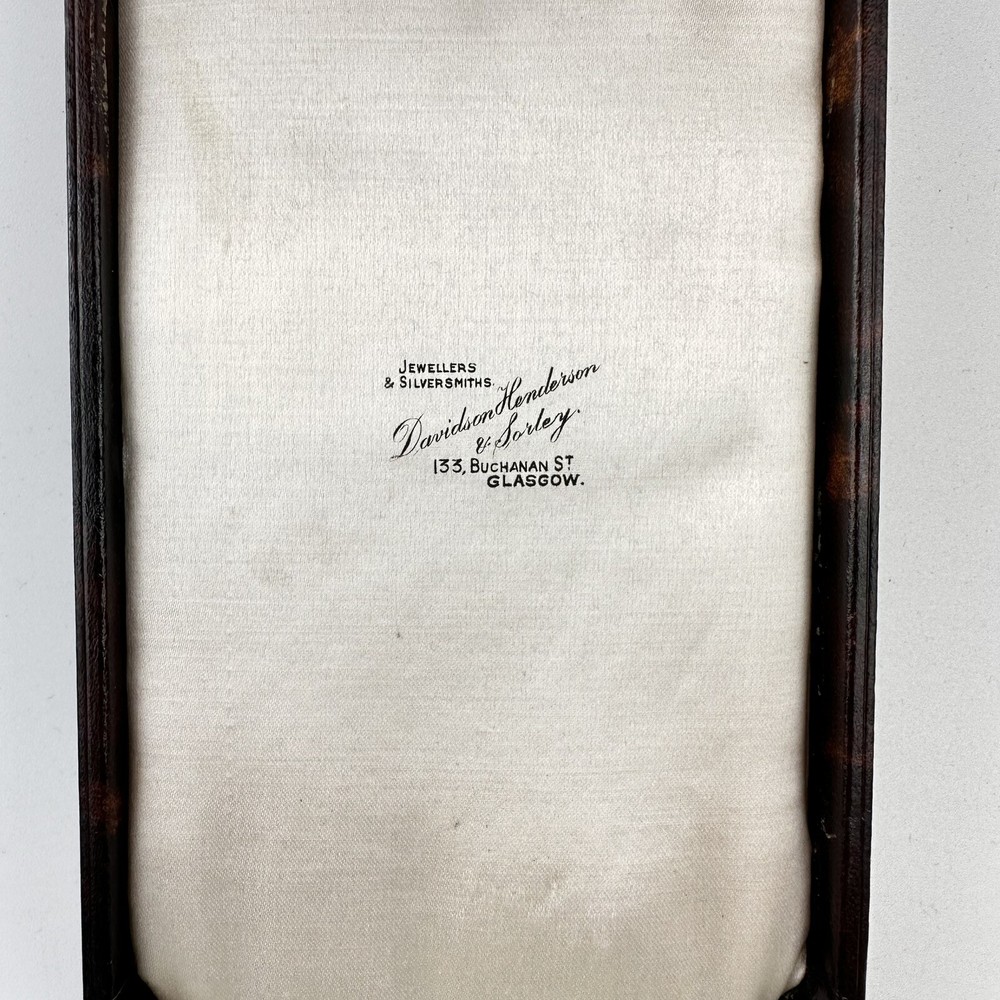 JEWELLERS
& SILVERSMITHS.
Davidson Henderson
& Sorley.
133, BUCHANAN ST
GLASGOW.